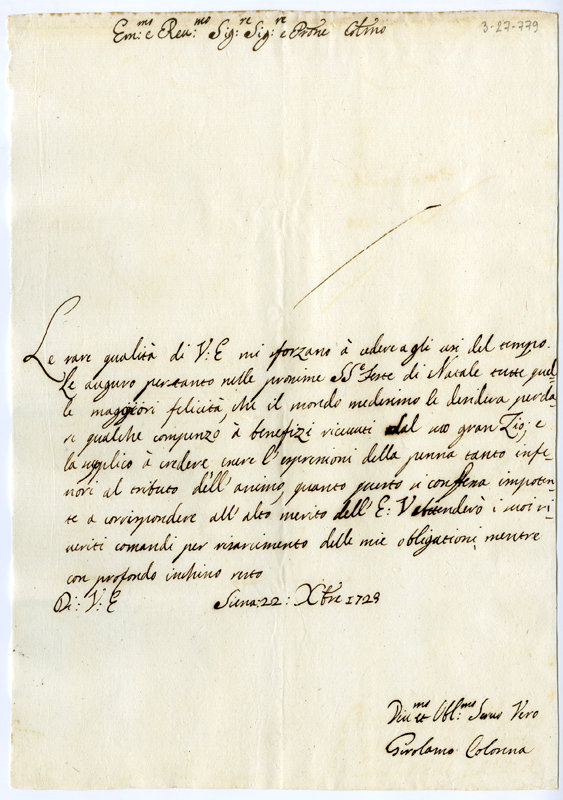 Em:ms e Reu:mo Sig:re Sig:re e Prõne Colmo
3-27-779
Le rare qualità di V:E mi sforzano à cedere agli usi del tempo.
Le auguro pertanto nelle prossime SS.e feste di Natale tutte quel=
le maggiori felicità, che il mondo medesimo le desidera per da=
re qualche compenzo à benefizi riceuuti dal suo gran Zio; e
la supplico à credere essere l'espressioni della penna tanto infe=
riori al tributo dell'animo, quanto questo si confessa impoten=
te a corrispondere all'alto merito dell'E: V attenderò i suoi ri=
ueriti comandi per risarcimento delle mie obligationi, mentre
con profondo inchino resto
Di: V: E Siena 22: Xbre 1729
Diu:ms et Obl:mo Seruo Vero
Girolamo Colonna